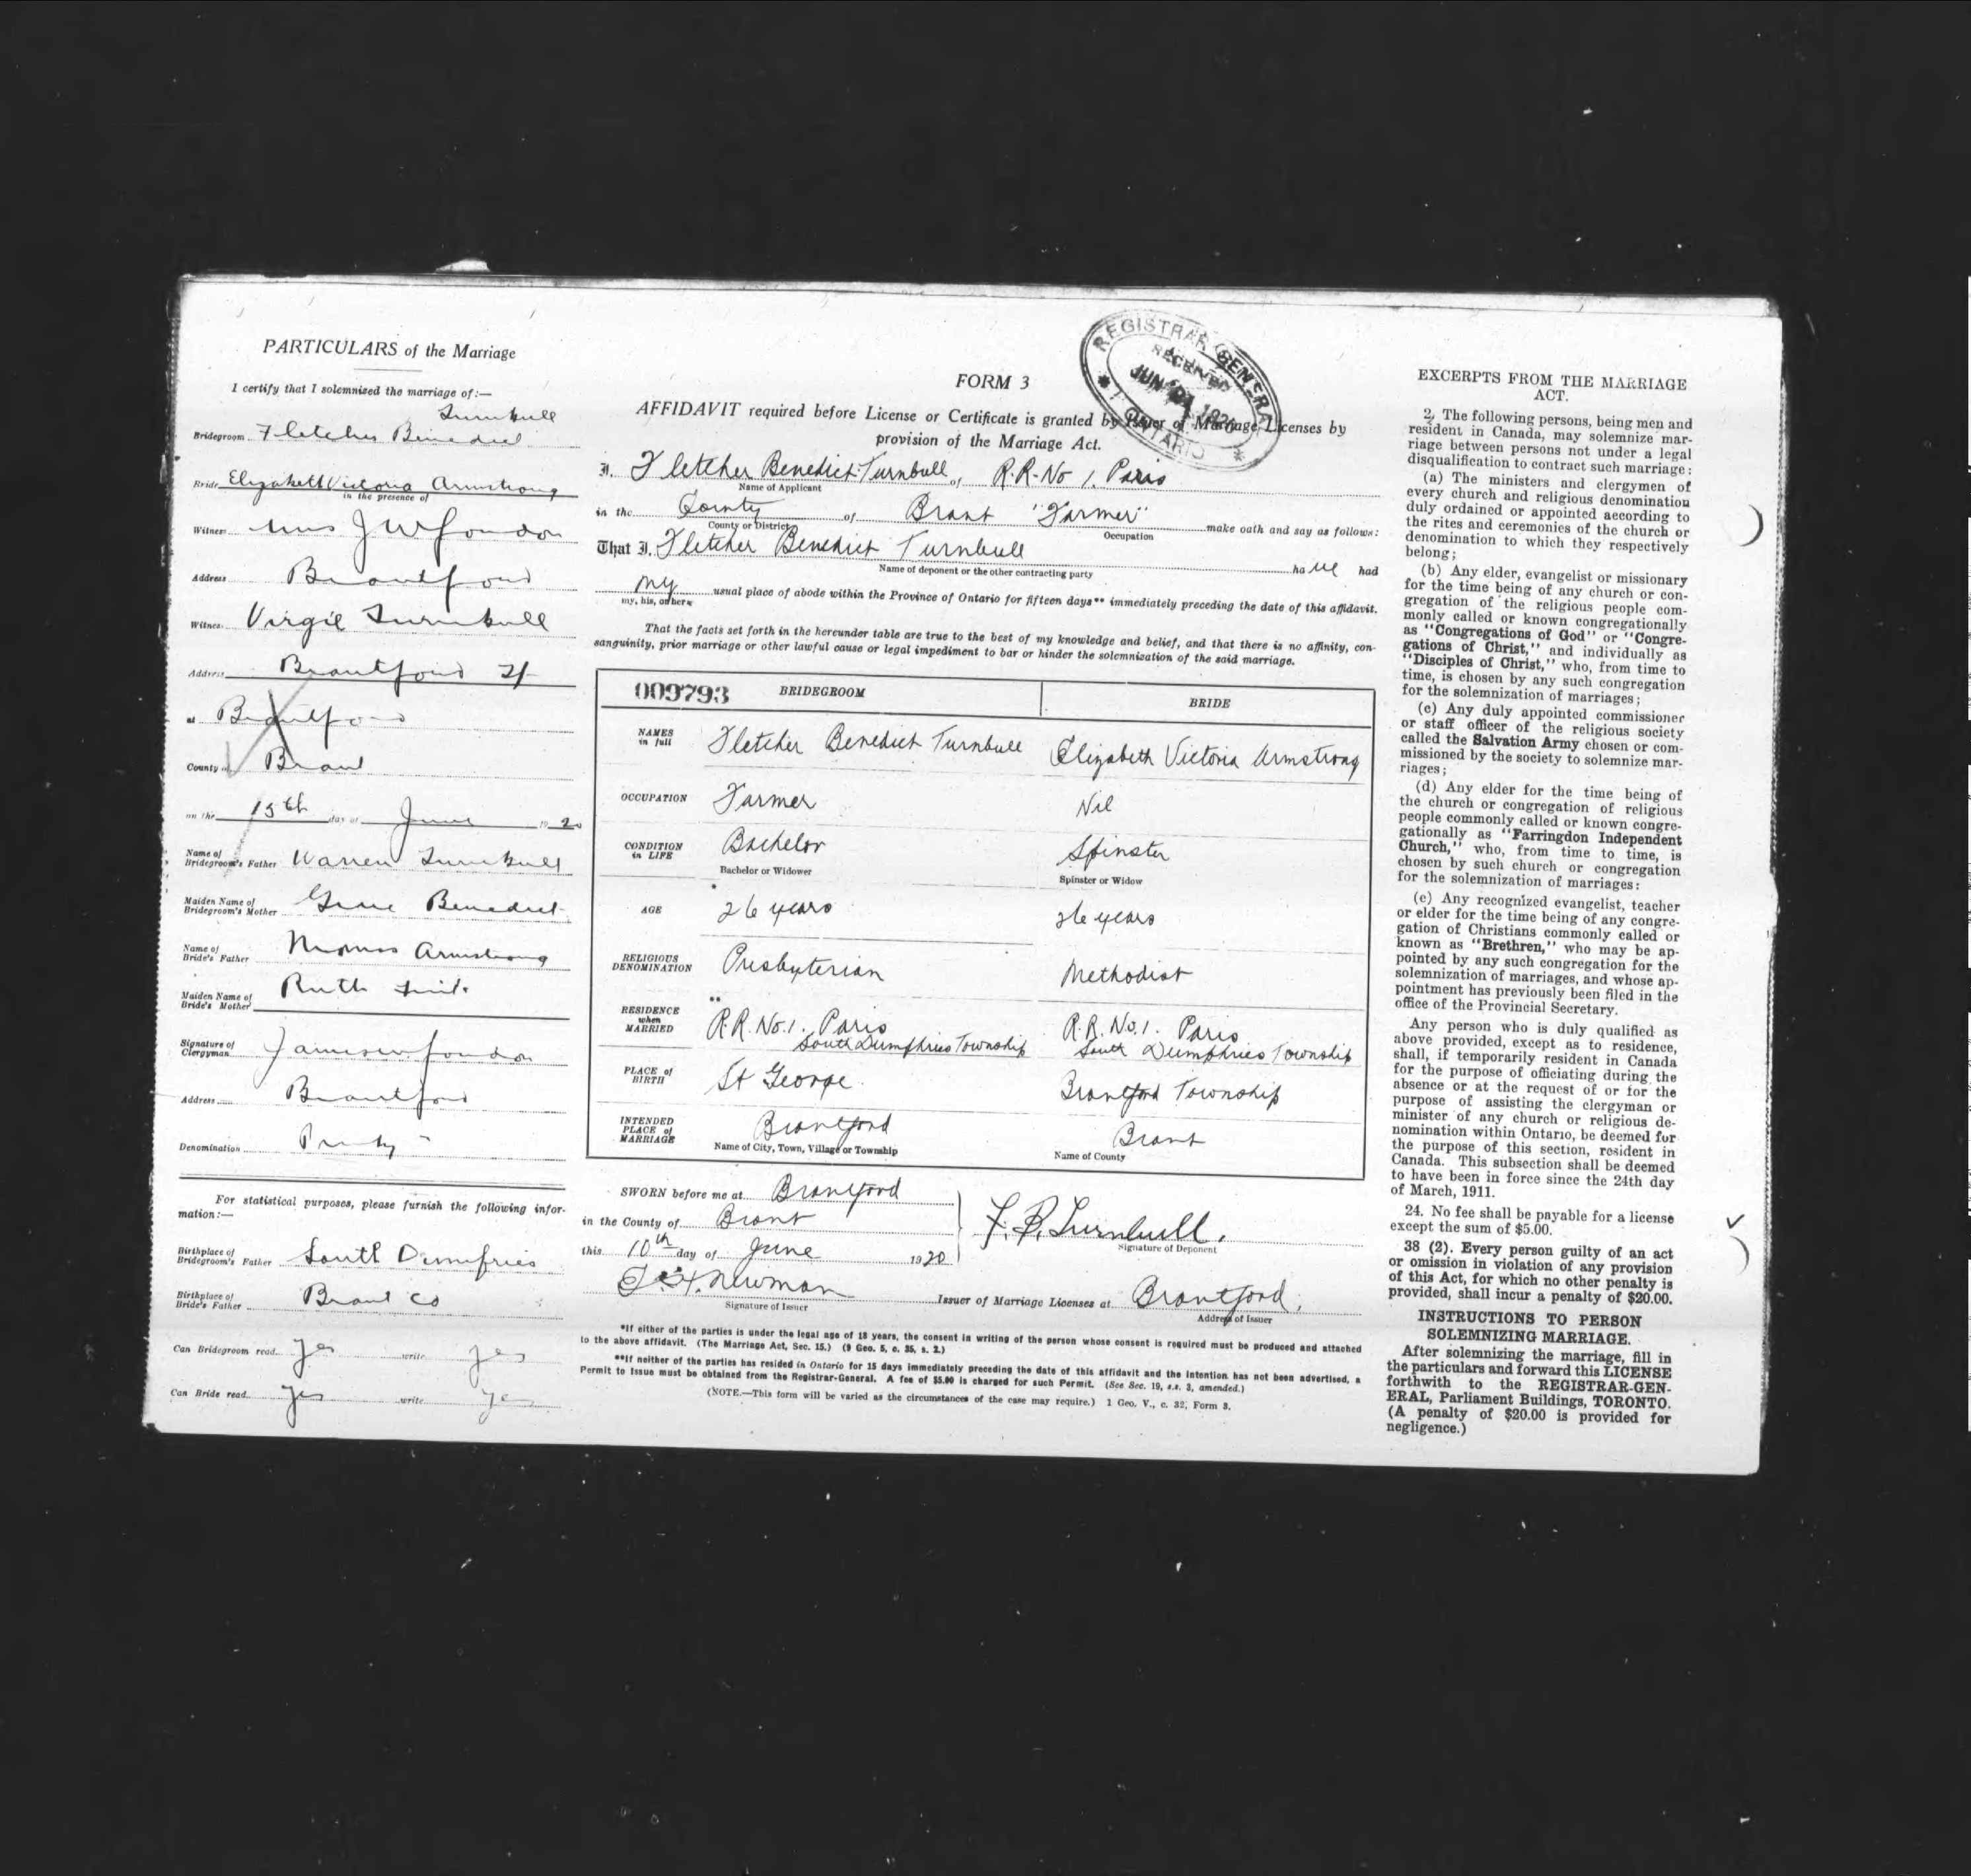 PARTICULARS of the Marriage
I certify that I solemnised the marriage of:—
Turnbull
Bridegroom Fletcher Benedict
Bride Elizabeth Victoria Armstrong
in the presence of
Witness Mrs J W
Address Brantford
Witness Virgil Turnbull
Address Brantford
at Brantford
County of Brant
on the 15th day of June 1920
Name of
Bridegroom's Father Warren Turnbull
Maiden Name of
Bridegroom's Mother Benedict
Name of
Bride's Father Thomas Armstrong
Maiden Name of
Bride's Mother Ruth
Signature of
Clergyman
Address Brantford
Denomination
For statistical purposes, please furnish the following infor-
mation:—
Birthplace of
Bridegroom's Father South Dumfries
Birthplace of
Bride's Father Brant Co
Can Bridegroom read yes write yes
Can Bride read yes write yes
FORM 3
REGISTRAR GENERAL
RECEIVED
JUN 1920
ONTARIO
AFFIDAVIT required before License or Certificate is granted by Issuer of Marriage Licenses by
provision of the Marriage Act.
I, Fletcher Benedict Turnbull of R.R. No 1. Paris
Name of Applicant
in the County of Brant "Farmer" make oath and say as follows:
County or District
Occupation
That I, Fletcher Benedict Turnbull have had
Name of deponent or the other contracting party
my usual place of abode within the Province of Ontario for fifteen days** immediately preceding the date of this affidavit.
my, his, or her
That the facts set forth in the hereunder table are true to the best of my knowledge and belief, and that there is no affinity, con-
sanguinity, prior marriage or other lawful cause or legal impediment to bar or hinder the solemnization of the said marriage.
009793 BRIDEGROOM BRIDE
NAMES
in full Fletcher Benedict Turnbull Elizabeth Victoria Armstrong
OCCUPATION Farmer Nil
CONDITION
in LIFE Bachelor Spinster
Bachelor or Widower Spinster or Widow
*
AGE 26 years 26 years
RELIGIOUS
DENOMINATION Presbyterian Methodist
**
RESIDENCE
when
MARRIED R.R. No. 1. Paris R.R. No. 1. Paris
South Dumphries Township South Dumphries Township
PLACE of
BIRTH St George Brantford Township
INTENDED
PLACE of
MARRIAGE Brantford Brant
Name of City, Town, Village or Township Name of County
SWORN before me at Brantford
in the County of Brant
this 10th day of June 1920
F. B. Turnbull.
Signature of Deponent
Newman Issuer of Marriage Licenses at Brantford.
Signature of Issuer Address of Issuer
*If either of the parties is under the legal age of 18 years, the consent in writing of the person whose consent is required must be produced and attached
to the above affidavit. (The Marriage Act, Sec. 15.) (9 Geo. 5, c. 35, s. 2.)
**If neither of the parties has resided in Ontario for 15 days immediately preceding the date of this affidavit and the intention has not been advertised, a
Permit to Issue must be obtained from the Registrar-General. A fee of $5.00 is charged for such Permit. (See Sec. 19, s.s. 3, amended.)
(NOTE.—This form will be varied as the circumstances of the case may require.) 1 Geo. V., c. 32, Form 3.
EXCERPTS FROM THE MARRIAGE
ACT.
2. The following persons, being men and
resident in Canada, may solemnize mar-
riage between persons not under a legal
disqualification to contract such marriage:
(a) The ministers and clergymen of
every church and religious denomination
duly ordained or appointed according to
the rites and ceremonies of the church or
denomination to which they respectively
belong;
(b) Any elder, evangelist or missionary
for the time being of any church or con-
gregation of the religious people com-
monly called or known congregationally
as "Congregations of God" or "Congre-
gations of Christ," and individually as
"Disciples of Christ," who, from time to
time, is chosen by any such congregation
for the solemnization of marriages;
(c) Any duly appointed commissioner
or staff officer of the religious society
called the Salvation Army chosen or com-
missioned by the society to solemnize mar-
riages;
(d) Any elder for the time being of
the church or congregation of religious
people commonly called or known congre-
gationally as "Farringdon Independent
Church," who, from time to time, is
chosen by such church or congregation
for the solemnization of marriages:
(e) Any recognized evangelist, teacher
or elder for the time being of any congre-
gation of Christians commonly called or
known as "Brethren," who may be ap-
pointed by any such congregation for the
solemnization of marriages, and whose ap-
pointment has previously been filed in the
office of the Provincial Secretary.
Any person who is duly qualified as
above provided, except as to residence,
shall, if temporarily resident in Canada
for the purpose of officiating during the
absence or at the request of or for the
purpose of assisting the clergyman or
minister of any church or religious de-
nomination within Ontario, be deemed for
the purpose of this section, resident in
Canada. This subsection shall be deemed
to have been in force since the 24th day
of March, 1911.
24. No fee shall be payable for a license
except the sum of $5.00.
38 (2). Every person guilty of an act
or omission in violation of any provision
of this Act, for which no other penalty is
provided, shall incur a penalty of $20.00.
INSTRUCTIONS TO PERSON
SOLEMNIZING MARRIAGE.
After solemnizing the marriage, fill in
the particulars and forward this LICENSE
forthwith to the REGISTRAR-GEN-
ERAL, Parliament Buildings, TORONTO.
(A penalty of $20.00 is provided for
negligence.)